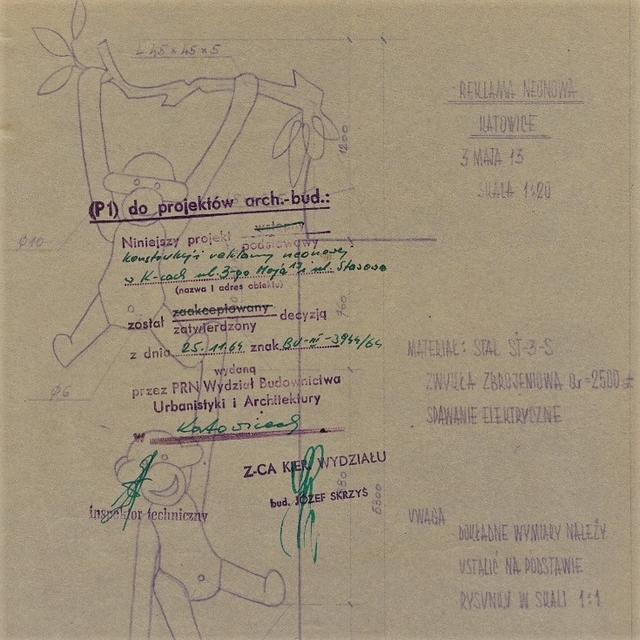 L 45×45×5
REKLAMA NEONOWA
KATOWICE
3 MAJA 13
SKALA 1:20
1200
(P1) do projektów arch.-bud.:
Niniejszy projekt wstępny
podstawowy
konstrukcji reklamy neonowej
w K-cach ul. 3-go Maja 13 i ul. Stawowa
(nazwa i adres obiektu)
został zaakceptowany decyzją
zatwierdzony
z dnia 25.11.64 znak BU-III-3944/64
wydaną
przez PRN Wydział Budownictwa
Urbanistyki i Architektury
w Katowicach
Z-CA KIER. WYDZIAŁU
bud. JÓZEF SKRZYS
Inspektor techniczny
Ø10
Ø6
6800
MATERIAŁ: STAL ST-3-S
ZWYKŁA ZBROJENIOWA Qr=2500
SPAWANIE ELEKTRYCZNE
UWAGA
DOKŁADNE WYMIARY NALEŻY
USTALIĆ NA PODSTAWIE
RYSUNKU W SKALI 1:1